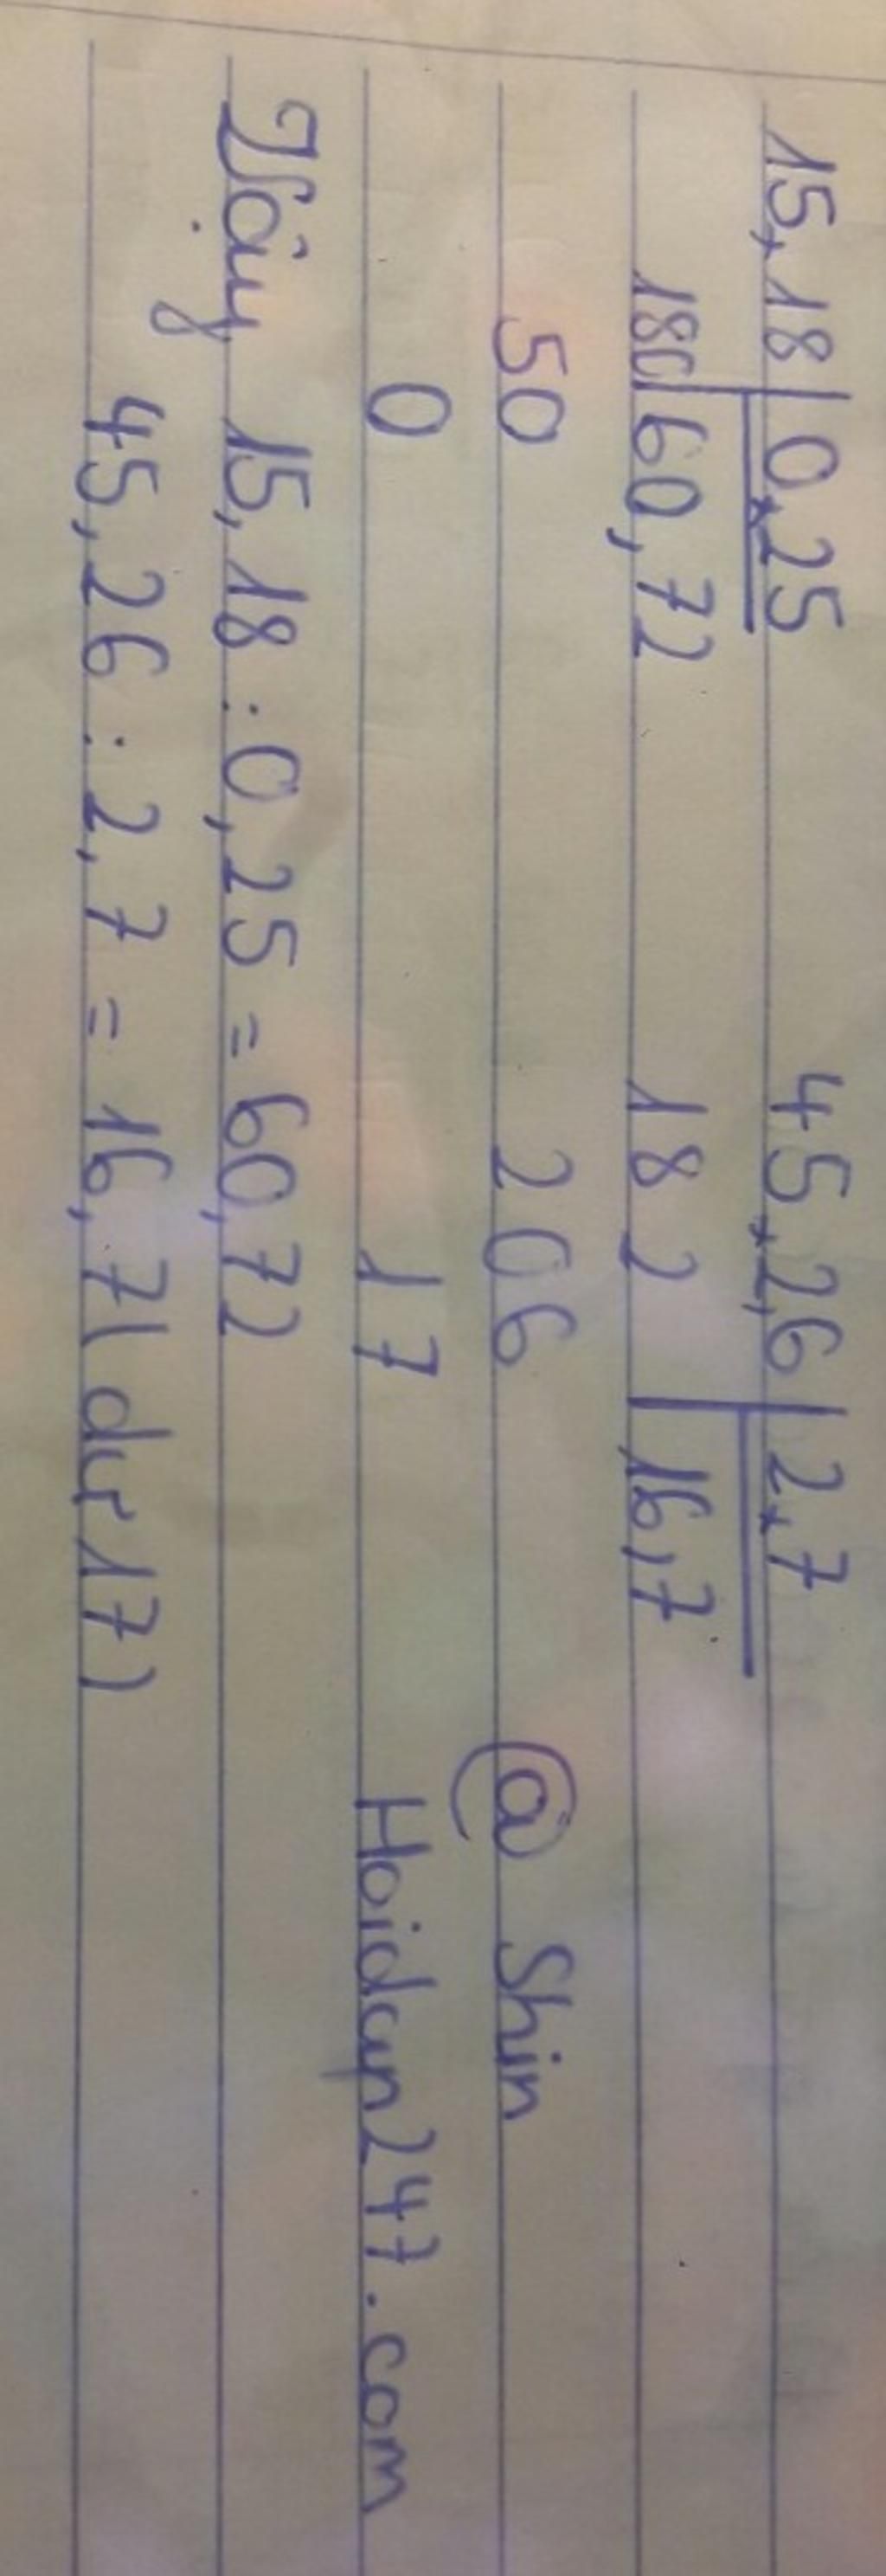 15,18 0,25 45,2,6 2,7
180 60,72 182 16,7
50 206 @ Shin
0 17 Hoidap247.com
Vậy 15,18 : 0,25 = 60,72
45,26 : 2,7 = 16,7 ( dư 17 )